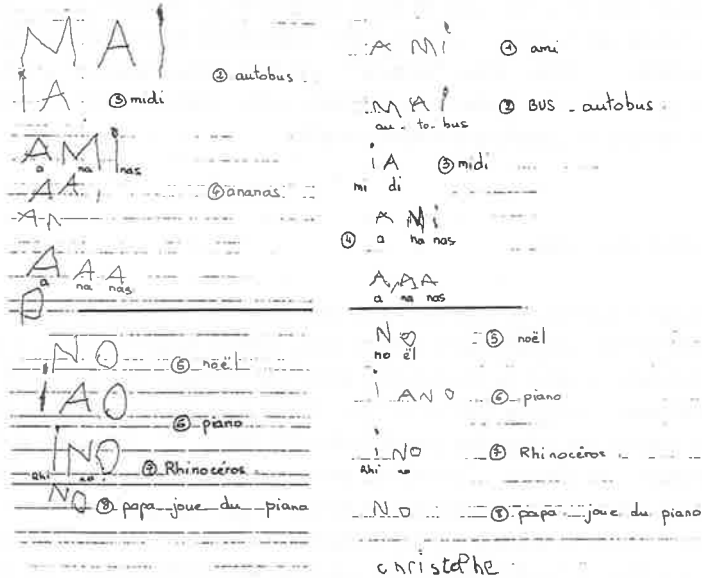 M A i
② autobus
i A ③ midi
A M i
a na nas
A A i ④ ananas
A n
A A A
a na nas
P
N O ⑤ noël
i A O
⑥ piano
i N O
Rhi no ⑦ Rhinocéros
N O ⑧ papa joue du piano
A M i ① ami
M A i ② BUS - autobus
au - to - bus
i A ③ midi
mi di
A M i
④ a na nas
A A A
a na nas
N O ⑤ noël
no ël
i A N O ⑥ piano
i N O ⑦ Rhinocéros
Rhi no
N O ⑧ papa joue du piano
christophe